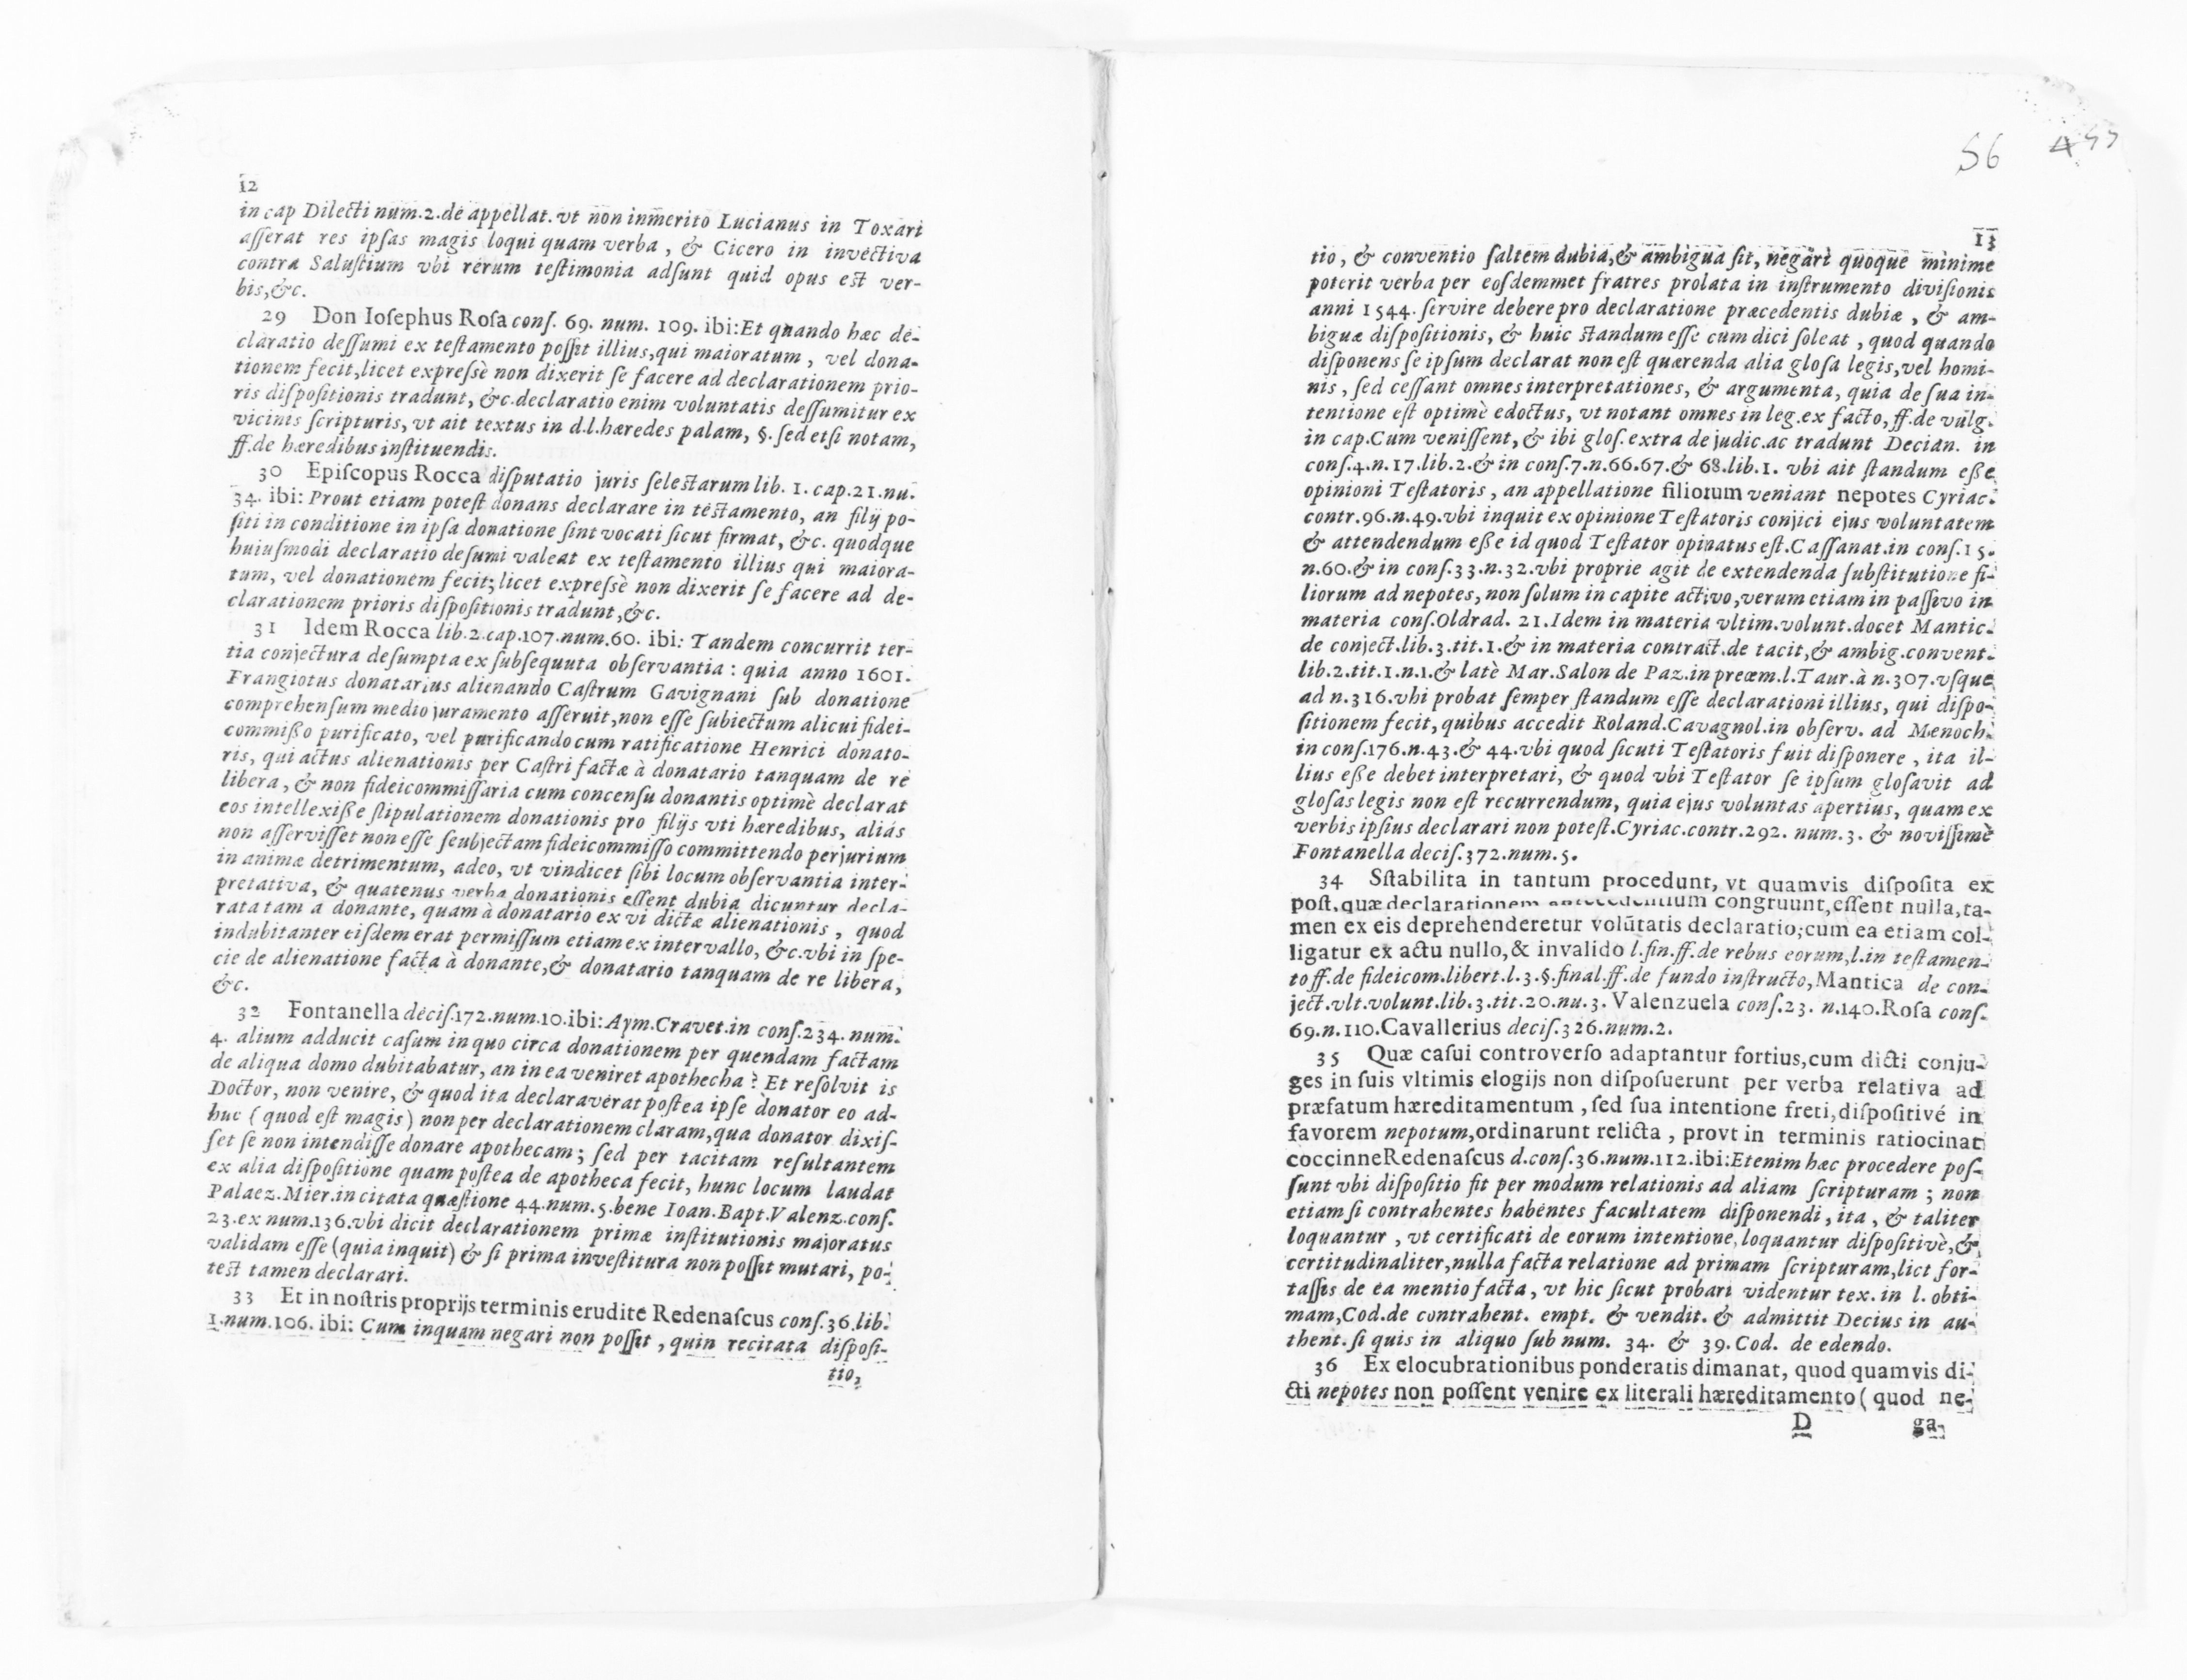 12
in cap Dilecti num.2.de appellat.vt non inmerito Lucianus in Toxari
asserat res ipsas magis loqui quam verba, & Cicero in invectiva
contra Salustium vbi rerum testimonia adsunt quid opus est ver-
bis,&c.
29 Don Iosephus Rosa cons. 69. num. 109. ibi:Et quando hæc de-
claratio dessumi ex testamento possit illius,qui maioratum, vel dona-
tionem fecit,licet expressè non dixerit se facere ad declarationem prio-
ris dispositionis tradunt, &c.declaratio enim voluntatis dessumitur ex
vicinis scripturis, vt ait textus in d.l.hæredes palam, §. sed etsi notam,
ff.de hæredibus instituendis.
30 Episcopus Rocca disputatio juris selectarum lib. 1. cap.21.nu.
34. ibi: Prout etiam potest donans declarare in testamento, an filij po-
siti in conditione in ipsa donatione sint vocati sicut firmat, &c. quodque
huiusmodi declaratio desumi valeat ex testamento illius qui maiora-
tum, vel donationem fecit; licet expressè non dixerit se facere ad de-
clarationem prioris dispositionis tradunt,&c.
31 Idem Rocca lib.2.cap.107.num.60. ibi: Tandem concurrit ter-
tia conjectura desumpta ex subsequuta observantia: quia anno 1601.
Frangiotus donatarius alienando Castrum Gavignani sub donatione
comprehensum medio juramento asseruit,non esse subiectum alicui fidei-
commisso purificato, vel purificando cum ratificatione Henrici donato-
ris, qui actus alienationis per Castri factæ à donatario tanquam de re
libera, & non fideicommissaria cum concensu donantis optimè declarat
eos intellexisse stipulationem donationis pro filijs vti hæredibus, aliás
non asservisset non esse seubjectam fideicommisso committendo perjurium
in animæ detrimentum, adeo, vt vindicet sibi locum observantia inter-
pretativa, & quatenus verba donationis essent dubia dicuntur decla-
rata tam a donante, quam à donatario ex vi dictæ alienationis, quod
indubitanter eisdem erat permissum etiam ex intervallo, &c.vbi in spe-
cie de alienatione facta à donante,& donatario tanquam de re libera,
&c.
32 Fontanella decis.172.num.10.ibi: Aym.Cravet.in cons.234. num.
4. alium adducit casum in quo circa donationem per quendam factam
de aliqua domo dubitabatur, an in ea veniret apothecha? Et resolvit is
Doctor, non venire, & quod ita declaraverat postea ipse donator eo ad-
huc (quod est magis) non per declarationem claram,qua donator dixis-
set se non intendisse donare apothecam; sed per tacitam resultantem
ex alia dispositione quam postea de apotheca fecit, hunc locum laudat
Palaez.Mier.in citata quæstione 44.num.5.bene Ioan.Bapt.Valenz.cons.
23.ex num.136.vbi dicit declarationem primæ institutionis majoratus
validam esse (quia inquit) & si prima investitura non possit mutari, po-
test tamen declarari.
33 Et in nostris proprijs terminis erudite Redenascus cons.36.lib.
1.num.106. ibi: Cum inquam negari non possit, quin recitata disposi-
tio,
56
13
tio, & conventio saltem dubia,& ambigua sit, negari quoque minime
poterit verba per eosdemmet fratres prolata in instrumento divisionis
anni 1544. servire debere pro declaratione præcedentis dubiæ, & am-
biguæ dispositionis, & huic standum esse cum dici soleat, quod quando
disponens se ipsum declarat non est quærenda alia glosa legis,vel homi-
nis, sed cessant omnes interpretationes, & argumenta, quia de sua in-
tentione est optimè edoctus, vt notant omnes in leg.ex facto, ff.de vulg.
in cap.Cum venissent,& ibi glos.extra de judic.ac tradunt Decian. in
cons.4.n.17.lib.2.& in cons.7.n.66.67.& 68.lib.1. vbi ait standum esse
opinioni Testatoris, an appellatione filiorum veniant nepotes Cyriac.
contr.96.n.49.vbi inquit ex opinione Testatoris conjici ejus voluntatem
& attendendum esse id quod Testator opinatus est.Cassanat.in cons.15.
n.60.& in cons.33.n.32.vbi proprie agit de extendenda substitutione fi-
liorum ad nepotes, non solum in capite activo,verum etiam in passivo in
materia cons.Oldrad. 21.Idem in materia vltim.volunt.docet Mantic.
de conject.lib.3.tit.1.& in materia contract.de tacit,& ambig.convent.
lib.2.tit.1.n.1.& latè Mar.Salon de Paz.in preœm.l.Taur.à n.307.vsque
ad n.316.vbi probat semper standum esse declarationi illius, qui dispo-
sitionem fecit, quibus accedit Roland.Cavagnol.in observ. ad Mænoch.
in cons.176.n.43.& 44.vbi quod sicuti Testatoris fuit disponere, ita il-
lius esse debet interpretari, & quod vbi Testator se ipsum glosavit ad
glosas legis non est recurrendum, quia ejus voluntas apertius, quam ex
verbis ipsius declarari non potest.Cyriac.contr.292. num.3. & novissimè
Fontanella decis.372.num.5.
34 Sstabilita in tantum procedunt, vt quamvis disposita ex
post,quæ declarationem antecedentium congruunt,essent nulla,ta-
men ex eis deprehenderetur volūtatis declaratio;cum ea etiam col-
ligatur ex actu nullo,& invalido l.fin.ff.de rebus eorum,l.in testamen-
to ff.de fideicom.libert.l.3.§.final.ff.de fundo instructo,Mantica de con-
ject.vlt.volunt.lib.3.tit.20.nu.3.Valenzuela cons.23. n.140.Rosa cons.
69.n.110.Cavallerius decis.326.num.2.
35 Quæ casui controverso adaptantur fortius,cum dicti conju-
ges in suis vltimis elogijs non disposuerunt per verba relativa ad
præfatum hæreditamentum, sed sua intentione freti,dispositivé in
favorem nepotum,ordinarunt relicta, provt in terminis ratiocinat
coccinneRedenascus d.cons.36.num.112.ibi:Etenim hæc procedere pos-
sunt vbi dispositio fit per modum relationis ad aliam scripturam; non
etiam si contrahentes habentes facultatem disponendi, ita, & taliter
loquantur, vt certificati de eorum intentione loquantur dispositivè,&
certitudinaliter,nulla facta relatione ad primam scripturam,lict for-
tassis de ea mentio facta, vt hic sicut probari videntur tex. in l. obti-
mam,Cod.de contrahent. empt. & vendit. & admittit Decius in au-
thent. si quis in aliquo sub num. 34. & 39.Cod. de edendo.
36 Ex elocubrationibus ponderatis dimanat, quod quamvis di-
cti nepotes non possent venire ex literali hæreditamento (quod ne-
D ga-